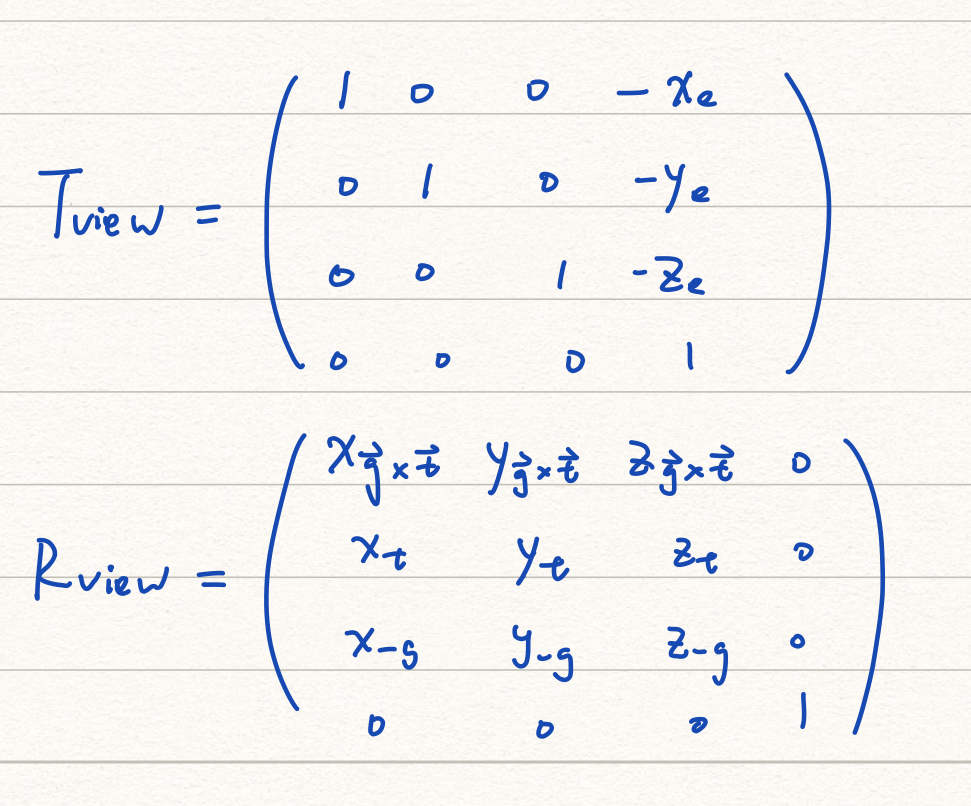 T_view = ( 1 0 0 -x_e
0 1 0 -y_e
0 0 1 -z_e
0 0 0 1 )
R_view = ( x_{\vec{g}×\vec{t}} y_{\vec{g}×\vec{t}} z_{\vec{g}×\vec{t}} 0
x_t y_t z_t 0
x_{-g} y_{-g} z_{-g} 0
0 0 0 1 )